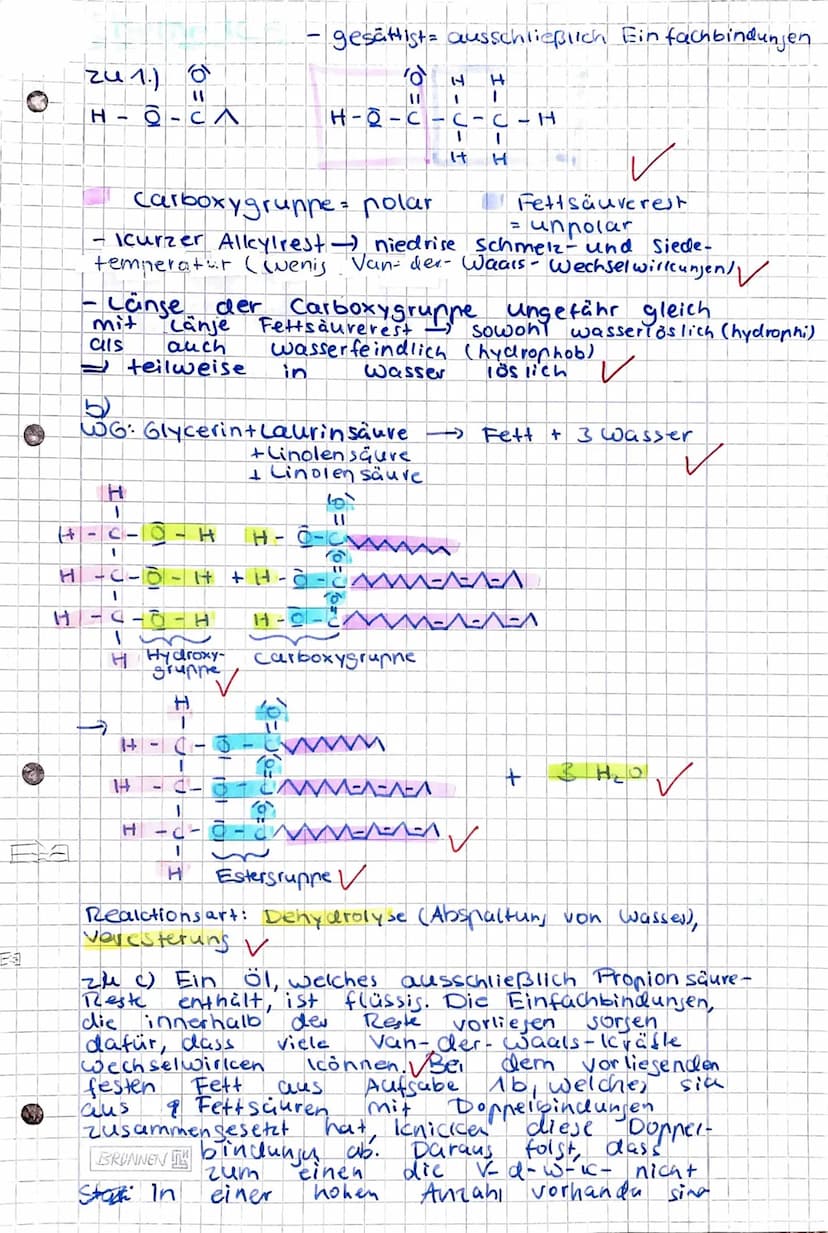 - gesättigt = ausschließlich Einfachbindungen
zu 1.)
O
||
H - O - C
O H H
|| | |
H - O - C - C - C - H
| |
H H
Carboxygruppe = polar
Fettsäurerest
= unpolar
- kurzer Alkylrest → niedrige Schmelz- und Siede-
temperatur (wenig Van-der-Waals-Wechselwirkungen)
- Länge der Carboxygruppe ungefähr gleich
mit Länge Fettsäurerest → sowohl wasserlöslich (hydrophi)
als auch wasserfeindlich (hydrophob)
⇒ teilweise in Wasser löslich
b)
WG: Glycerin + Laurinsäure → Fett + 3 Wasser
+ Linolensäure
+ Linolensäure
H
|
H - C - O - H H - O - C
H - C - O - H + H - O - C
H - C - O - H H - O - C
|
H Hydroxy-
gruppe
Carboxygruppe
→
H
|
H - C - O - C
H - C - O - C + 3 H₂O
H - C - O - C
|
H Estergruppe
Reaktionsart: Dehydrolyse (Abspaltung von Wasser),
Veresterung
zu c) Ein Öl, welches ausschließlich Propionsäure-
Reste enthält, ist flüssig. Die Einfachbindungen,
die innerhalb der Reste vorliegen sorgen
dafür, dass viele Van-der-Waals-Kräfte
wechselwirken können. Bei dem vorliegenden
festen Fett aus Aufgabe 1b, welches sich
aus Fettsäuren mit Doppelbindungen
zusammengesetzt hat, knicken diese Doppel-
BRUNNEN
bindungen ab. Daraus folgt, dass
zum einen die V-d-W-K- nicht
in einer hohen Anzahl vorhanden sind